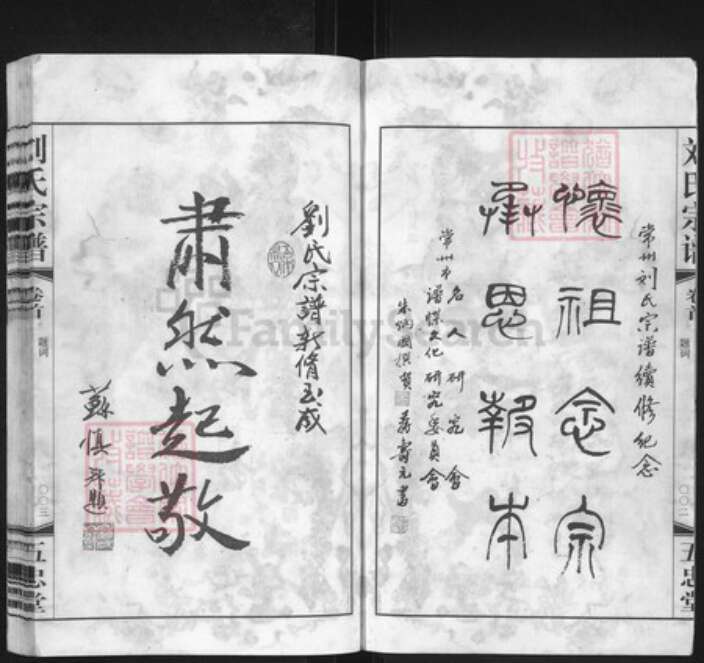 刘氏宗谱
卷首
题词
〇〇二
五忠堂
常州刘氏宗谱續修纪念
懷祖念宗
承恩報本
常州市名人研究会
谱牒文化研究委員会
朱炳國撰賀
蒋壽元書
劉氏宗譜新修玉成
肅然起敬
蘇慎
題
刘氏宗谱
卷首
题词
〇〇三
五忠堂
FamilySearch